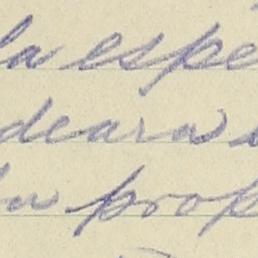 la espe
deara
su prop